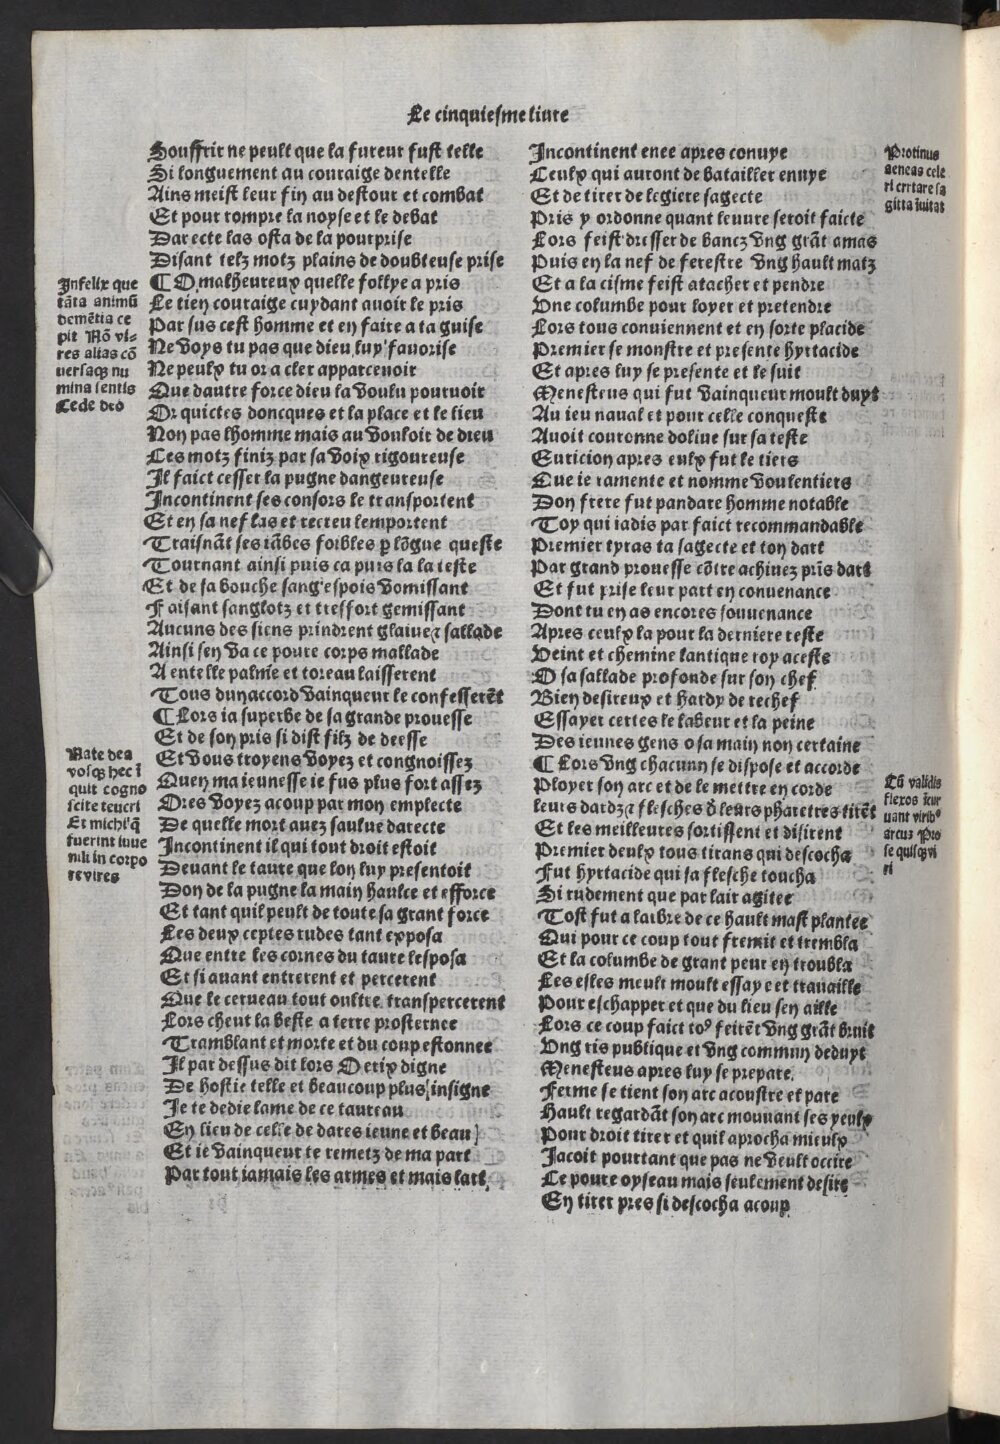 Le cinquiesme liure
Souffrir ne peult que la fureur fust telle
Si longuement au couraige dentelle
Ains meist leur fin au destour et combat
Et pour rompre la noyse et le debat
Darecte las osta de la pourprise
Disant telz motz plains de doubteuse prise
¶ O malheureux quelle follye a pris
Le tien couraige cuydant auoir le pris
Par sus cest homme et en faire a ta guise
Ne voys tu pas que dieu luy fauorise
Ne peulx tu or a cler apparceuoir
Que dautre force dieu la voulu pouruoir
Or quictes doncques et la place et le lieu
Non pas lhomme mais au vouloir de dieu
Ces motz finiz par sa voix rigoureuse
Il faict cesser la pugne dangeureuse
Incontinent ses consors le transportent
Et en sa nef las et recreu lemportent
Traisnãt ses iãbes foibles p lõgue queste
Tournant ainsi puis ca puis la la teste
Et de sa bouche sang espois vomissant
Faisant sanglotz et tresfort gemissant
Aucuns des siens prindrent glaiue ⁊ sallade
Ainsi sen va ce poure corps mallade
A entelle palme et toreau laisserent
Tous dunaccord vainqueur le confesserẽt
¶ Lors ia superbe de sa grande prouesse
Et de son pris si dist filz de deesse
Et vous troyens voyez et congnoissez
Quen ma ieunesse ie fus plus fort assez
Ores voyez acoup par mon emplecte
De quelle mort auez saulue darecte
Incontinent il qui tout droit estoit
Deuant le taure que lon luy presentoit
Don de la pugne la main haulce et efforce
Et tant quil peult de toute sa grant force
Les deux cestes rudes tant exposa
Que entre les cornes du taure lesposa
Et si auant entrerent et percerent
Que le cerueau tout oultre transpercerent
Lors cheut la beste a terre prosternee
Tramblant et morte et du coup estonnee
Il par dessus dit lors O erix digne
De hostie telle et beaucoup plus insigne
Je te dedie lame de ce taureau
En lieu de celle de dares ieune et beau
Et ie vainqueur te remetz de ma part
Par tout iamais les armes et mais lart
Infelix que
tãta animũ
demẽtia ce
pit Nõ vi-
res alias cõ
uersaqꝫ nu
mina sentis
Cede deo
Nate dea
vosqꝫ hec ĩ
quit cogno
scite teucri
Et michi q̃
fuerint iuue
nili in corpo
re vires
Incontinent enee apres conuye
Ceulx qui auront de batailler enuye
Et de tirer de legiere sagecte
Pris y ordonne quant leuure seroit faicte
Lors feist dresser de bancz vng grãt amas
Puis en la nef de serestre vng hault matz
Et a la cisme feist atacher et pendre
Une columbe pour loyer et pretendre
Lors tous conuiennent et en sorte placide
Premier se monstre et presente hyrtacide
Et apres luy se presente et le suit
Menesteus qui fut vainqueur moult duyt
Au ieu naual et pour celle conqueste
Auoit couronne doliue sur sa teste
Euricion apres eulx fut le tiers
Que ie ramente et nomme voulentiers
Don frere fut pandare homme notable
Toy qui iadis par faict recommandable
Premier tyras ta sagecte et ton dart
Par grand prouesse cõtre achiuez prĩs dart
Et fut prise leur part en conuenance
Dont tu en as encores souuenance
Apres ceulx la pour la derniere reste
Veint et chemine lantique roy aceste
O sa sallade profonde sur son chef
Bien desireux et hardy de rechef
Essayer certes le labeur et la peine
Des ieunes gens o sa main non certaine
¶ Lors vng chacunn se dispose et accorde
Ployer son arc et de le mettre en corde
leurs dardz ⁊ flesches d̃ leurs pharettres tirẽt
Et les meilleures sortissent et disirent
Premier deulx tous tirans qui descocha
Fut hyrtacide qui sa flesche toucha
Si rudement que par lair agitee
Tost fut a larbre de ce hault mast plantee
Qui pour ce coup tout fremit et trembla
Et la columbe de grant peur en troubla
Les esles meult moult essaye et trauaille
Pour eschapper et que du lieu sen aille
Lors ce coup faict toꝰ feirẽt vng grãt bruit
Vng ris publique et vng commun deduyt
Menesteus apres luy se prepare
Ferme se tient son arc acoustre et pare
Hault regardãt son arc mouuant ses yeulx
Pour droit tirer et quil aprocha mieulx
Jacoit pourtant que pas ne veult occire
Ce poure oyseau mais seulement desire
En tirer pres si descocha acoup
Protinus
aeneas cele
ri certare sa
gitta ĩuitat
Cũ validis
flexos ĩcur
uant viribꝰ
arcus Pro
se quisqꝫ vi
ri